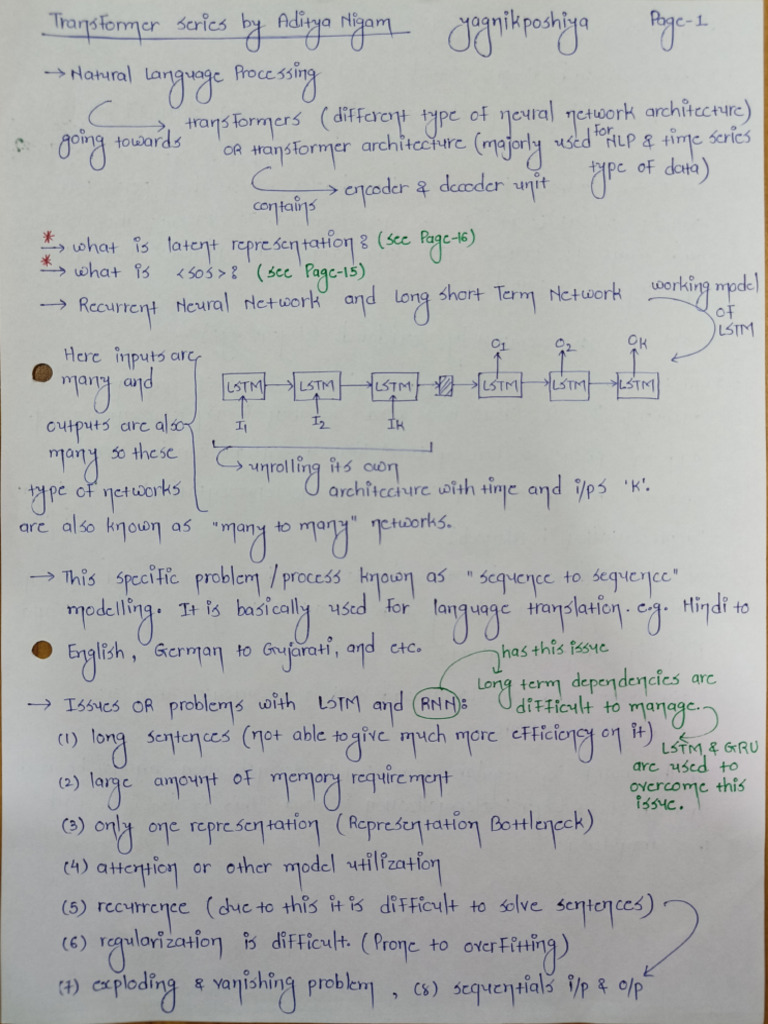 Transformer series by Aditya Nigam yagnikposhiya Page-1
→ Natural Language Processing
going towards → transformers (different type of neural network architecture)
OR transformer architecture (majorly used for NLP & time series
type of data)
contains → encoder & decoder unit
* → what is latent representation? (see Page-16)
* → what is <sos>? (see Page-15)
→ Recurrent Neural Network and Long short Term Network
working model
of
LSTM
Here inputs are
many and
outputs are also
many so these
type of networks
are also known as "many to many" networks.
O1 O2 OK
LSTM → LSTM → LSTM → → LSTM → LSTM → LSTM
I1 I2 IK
→ unrolling its own
architecture with time and i/ps 'K'.
→ This specific problem/process known as "sequence to sequence"
modelling. It is basically used for language translation. e.g. Hindi to
English, German to Gujarati, and etc.
→ Issues OR problems with LSTM and RNN:
has this issue
Long term dependencies are
difficult to manage.
LSTM & GRU
are used to
overcome this
issue.
(1) long sentences (not able to give much more efficiency on it)
(2) large amount of memory requirement
(3) only one representation (Representation Bottleneck)
(4) attention or other model utilization
(5) recurrence (due to this it is difficult to solve sentences)
(6) regularization is difficult. (Prone to overfitting)
(7) exploding & vanishing problem, (8) sequentials i/p & o/p